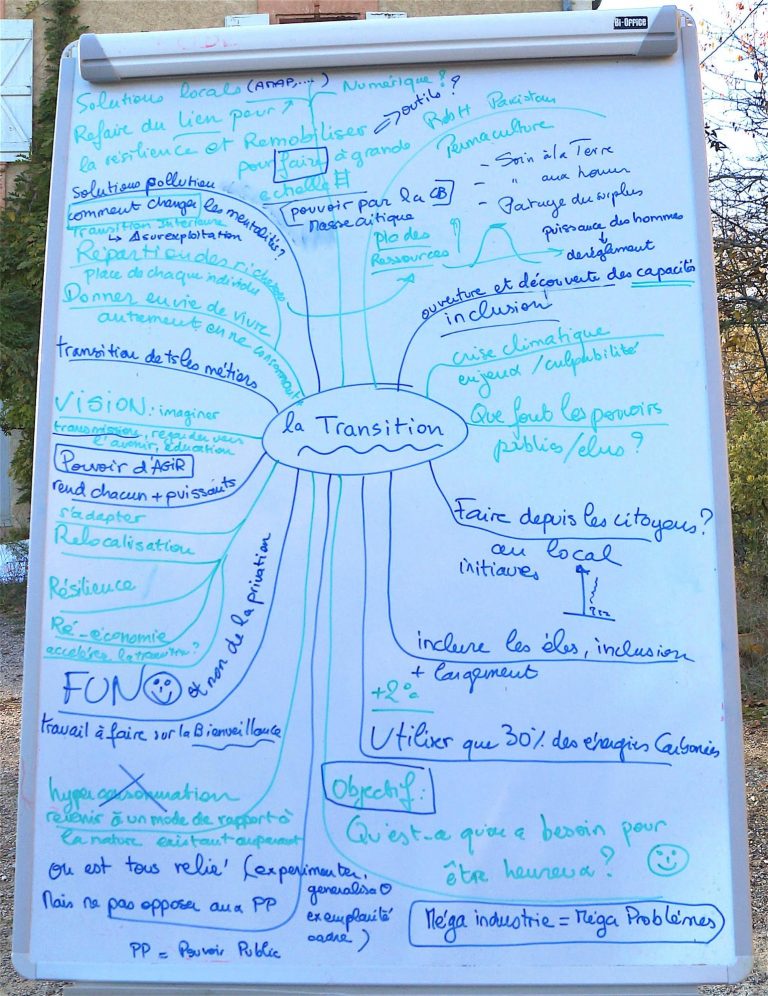 Bi-Office
Solutions locales (AMAP,...)
Numérique??
Refaire du lien pour
la résilience et Remobiliser
⇒ outils?
pour faire à grande
echelle #
Rob H Pakistan
Permaculture
- Soin à la Terre
- " aux homm
- Partage du surplus
Solutions pollution
comment changer les mentalités?
Transition Intérieure
↳ surexploitation
pouvoir par la CB
Masse critique
Pic des
Ressources
puissance des hommes
↓
dereglement
Répartion des riches
place de chaque individu
Donner envie de vivre
autrement ou ne
ouverture et découverte des capacités
inclusion
transition de ts les métiers
crise climatique
enjeux / culpabilité
la Transition
VISION: imaginer
transmission, regarder vers
l'avenir, éducation
Que font les pouvoirs
publics/elus?
Pouvoir d'AGIR
rend chacun + puissants
s'adapter
Relocalisation
Faire depuis les citoyens?
au local
initiaves
Résilience
Ré-économie
accelérer la transition?
inclure les éles, inclusion
+ largement
FUN et non de la privation
travail à faire sur la Bienveillance
+2°c
Utiliser que 30% des énergies Carbonées
hyper consommation
revenir à un mode de rapport à
la nature existant auparavant
Objectif:
Qu'est-ce qu'on a besoin pour
être heureux?
on est tous relié (experimenter,
generalisa
Mais ne pas opposer aux PP
exemplarité
cadre)
PP = Pouvoir Public
Méga industrie = Méga Problèmes